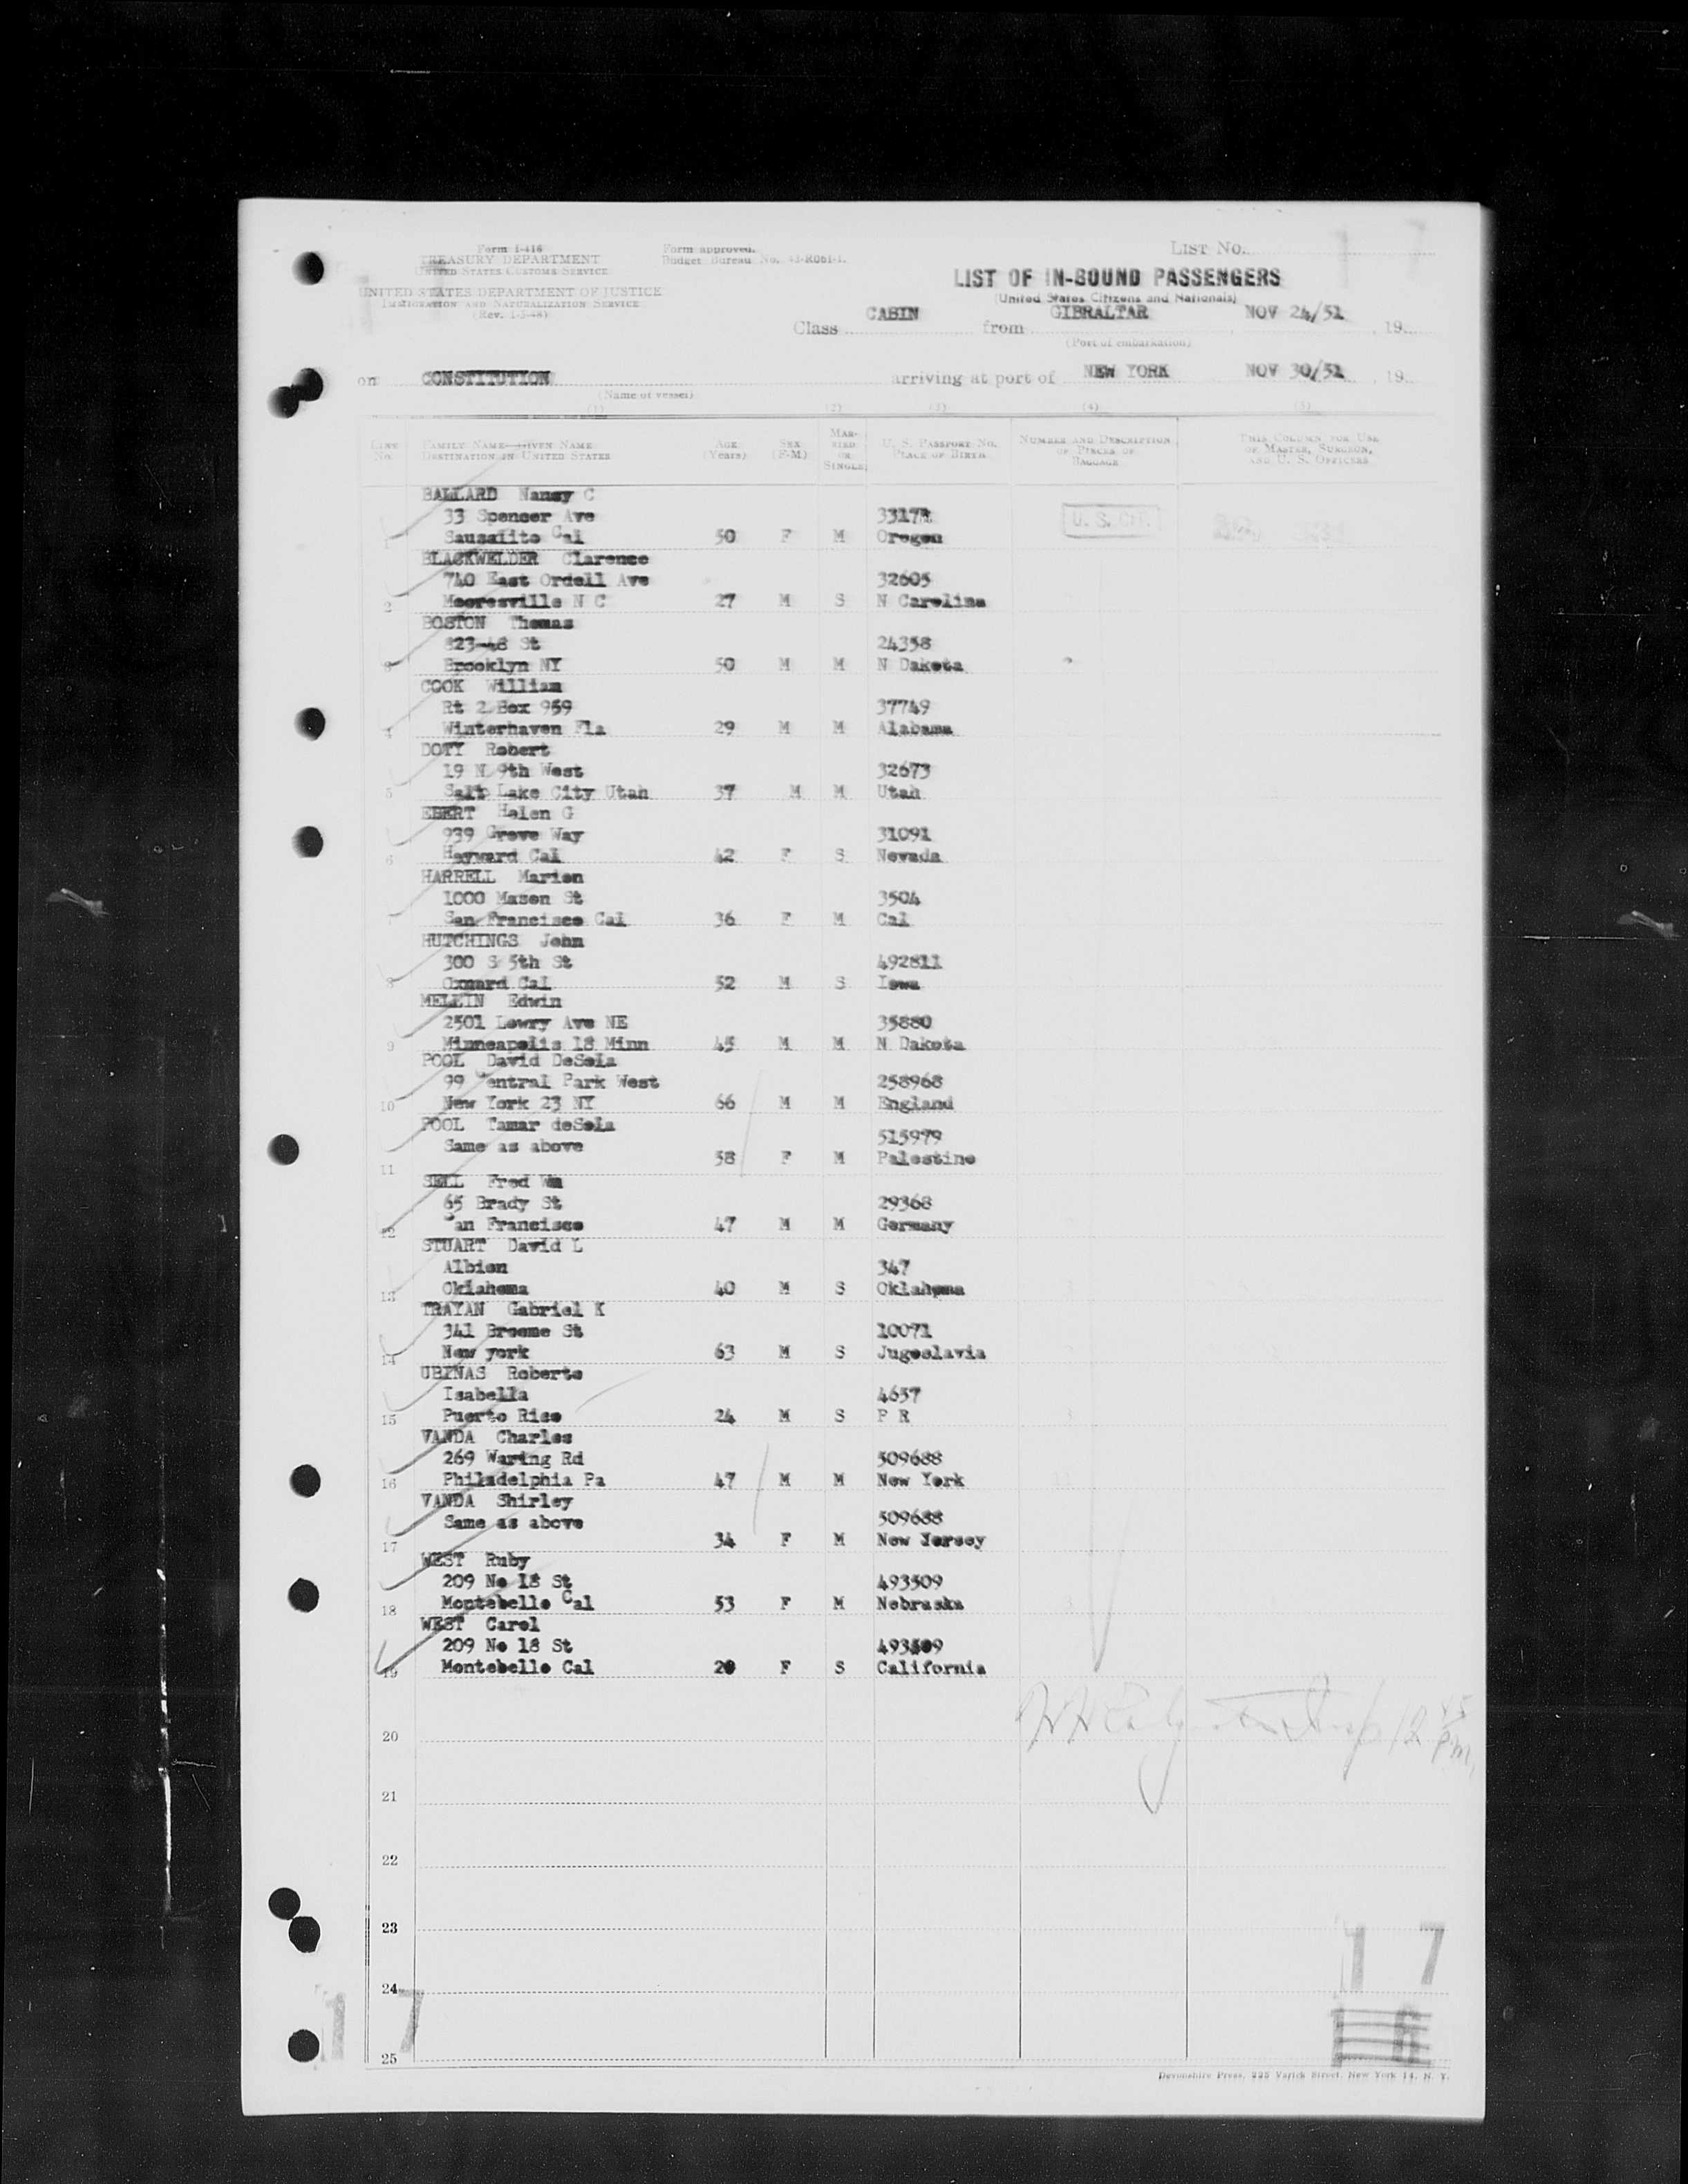 Form I-416
TREASURY DEPARTMENT
UNITED STATES CUSTOMS SERVICE
UNITED STATES DEPARTMENT OF JUSTICE
IMMIGRATION AND NATURALIZATION SERVICE
(Rev. 1-3-48)
Form approved.
Budget Bureau No. 43-R061-1.
LIST NO.
LIST OF IN-BOUND PASSENGERS
(United States Citizens and Nationals)
Class CABIN from GIBRALTAR NOV 24/51, 19
(Port of embarkation)
on CONSTITUTION arriving at port of NEW YORK NOV 30/51, 19
(Name of vessel)
(1) (2) (3) (4) (5)
LINE No. FAMILY NAME—GIVEN NAME DESTINATION IN UNITED STATES AGE (Years) SEX (F-M) MARRIED OR SINGLE U. S. PASSPORT NO. PLACE OF BIRTH NUMBER AND DESCRIPTION OF PIECES OF BAGGAGE THIS COLUMN FOR USE OF MASTER, SURGEON, AND U. S. OFFICERS
BALLARD Nancy C
33 Spencer Ave 3317
1 Sausalito Cal 50 F M Oregon
U. S. CIT.
BLACKWELDER Clarence
740 East Ordell Ave 32605
2 Mooresville N C 27 M S N Carolina
BOSTON Thomas
823-48 St 24358
3 Brooklyn NY 50 M M N Dakota
COOK William
Rt 2 Box 959 37749
4 Winterhaven Fla 29 M M Alabama
DOTY Robert
19 N 9th West 32673
5 Salt Lake City Utah 37 M M Utah
EBERT Helen G
939 Grove Way 31091
6 Hayward Cal 42 F S Nevada
HARRELL Marion
1000 Mason St 3504
7 San Francisco Cal 36 F M Cal
HUTCHINGS John
300 S 5th St 492811
8 Oxnard Cal 52 M S Iowa
MELLIN Edwin
2501 Lowry Ave NE 35880
9 Minneapolis 18 Minn 45 M M N Dakota
POOL David DeSola
99 Central Park West 258968
10 New York 23 NY 66 M M England
POOL Tamar deSola
Same as above 515979
11 58 F M Palestine
SELL Fred Wm
65 Brady St 29368
12 San Francisco 47 M M Germany
STUART David L
Albion 347
13 Oklahoma 40 M S Oklahoma
TRAYAN Gabriel K
341 Broome St 10071
14 New york 63 M S Jugoslavia
UBINAS Roberto
Isabella 4657
15 Puerto Rico 24 M S P R
VANDA Charles
269 Waring Rd 509688
16 Philadelphia Pa 47 M M New York
VANDA Shirley
Same as above 509688
17 34 F M New Jersey
WEST Ruby
209 No 18 St 493509
18 Montebello Cal 53 F M Nebraska
WEST Carol
209 No 18 St 493509
19 Montebello Cal 20 F S California
12 45 P.M.
20
21
22
23
24
25
17
17
16
Devonshire Press, 225 Varick Street, New York 14, N. Y.